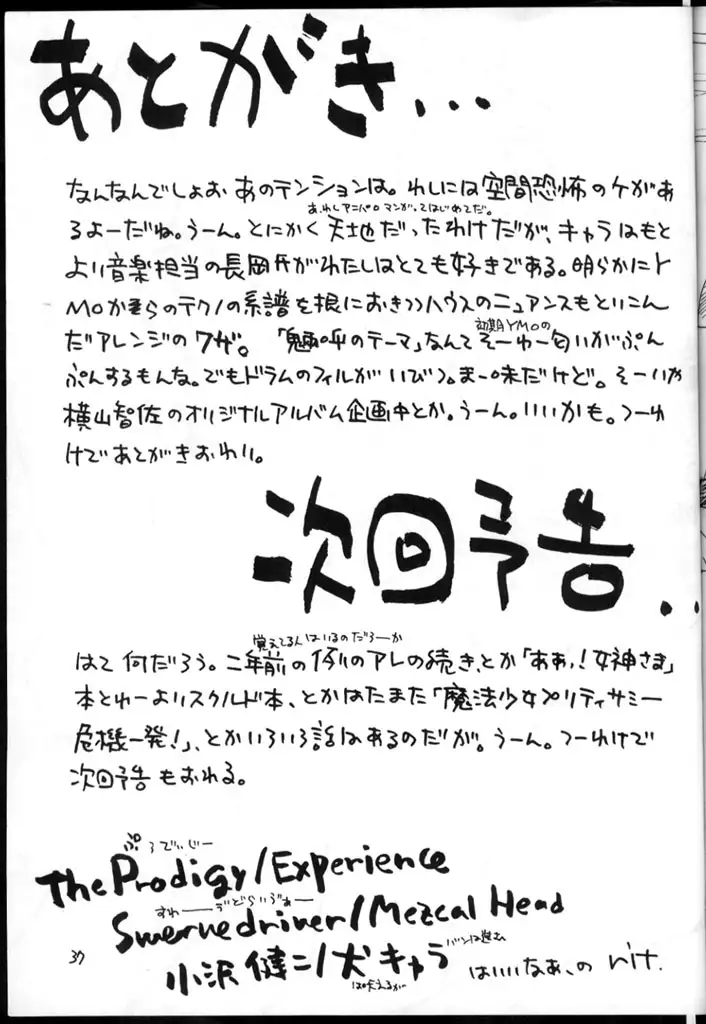 あとがき...
なんなんでしょお あのテンションは。わしには空間恐怖のケがあ
あ、わしアニパロマンガってはじめてだ。
るよーだね。うーん。とにかく天地だったわけだが、キャラはもと
より音楽担当の長岡氏がわたしはとても好きである。明らかにY
MOからのテクノの系譜を根におきつつハウスのニュアンスもとりこん
初期YMOの
だアレンジのワザ。「魎呼のテーマ」なんてそーゆー匂いがぷん
ぷんするもんな。でもドラムのフィルがいびつ。まー味だけど。そーいや
横山智佐のオリジナルアルバム企画中とか。うーん。いいかも。つーわ
けであとがきおわり。
次回予告..
覚えてる人はいるのだろーか
はて何だろう。二年前の例のアレの続き、とか「ああっ!女神さま」
本とゆーよりスクルド本、とかはたまた「魔法少女プリティサミー
危機一発!」、とかいろいろ話はあるのだが。うーん。つーわけで
次回予告もおわる。
ぷろでぃじー
The Prodigy/Experience
すわーヴどらいヴぁー
Swervedriver/Mezcal Head
小沢健二/犬キャラ はいいなぁ、の
バンは進む
は吠えるが
37